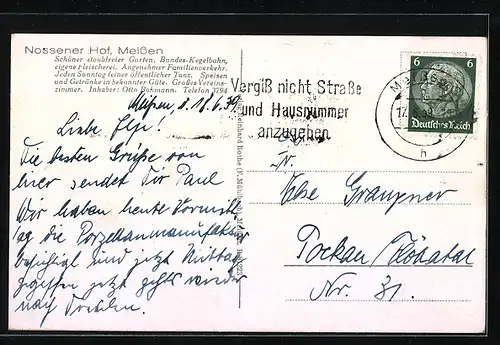 Nossener Hof, Meißen
Schöner staubfreier Garten. Bundes-Kegelbahn,
eigene Fleischerei. Angenehmer Familienverkehr.
Jeden Sonntag feiner öffentlicher Tanz. Speisen
und Getränke in bekannter Güte. Großes Vereins-
zimmer. Inhaber: Otto Bohmann. Telefon 3794
Vergiß nicht Straße
und Hausnummer
anzugeben
6 6
Deutsches Reich
h
Meißen, d. 18.6.39.
Liebe Else!
Die besten Grüße von
hier sendet Dir Paul
Wir haben heute Vormitt
ag die Porzellanmanufaktur
besichtigt und jetzt Mittag
gegessen jetzt gehts wieder
nach Dresden.
Frl.
Else
Pockau/Flöhatal
Nr. 31.